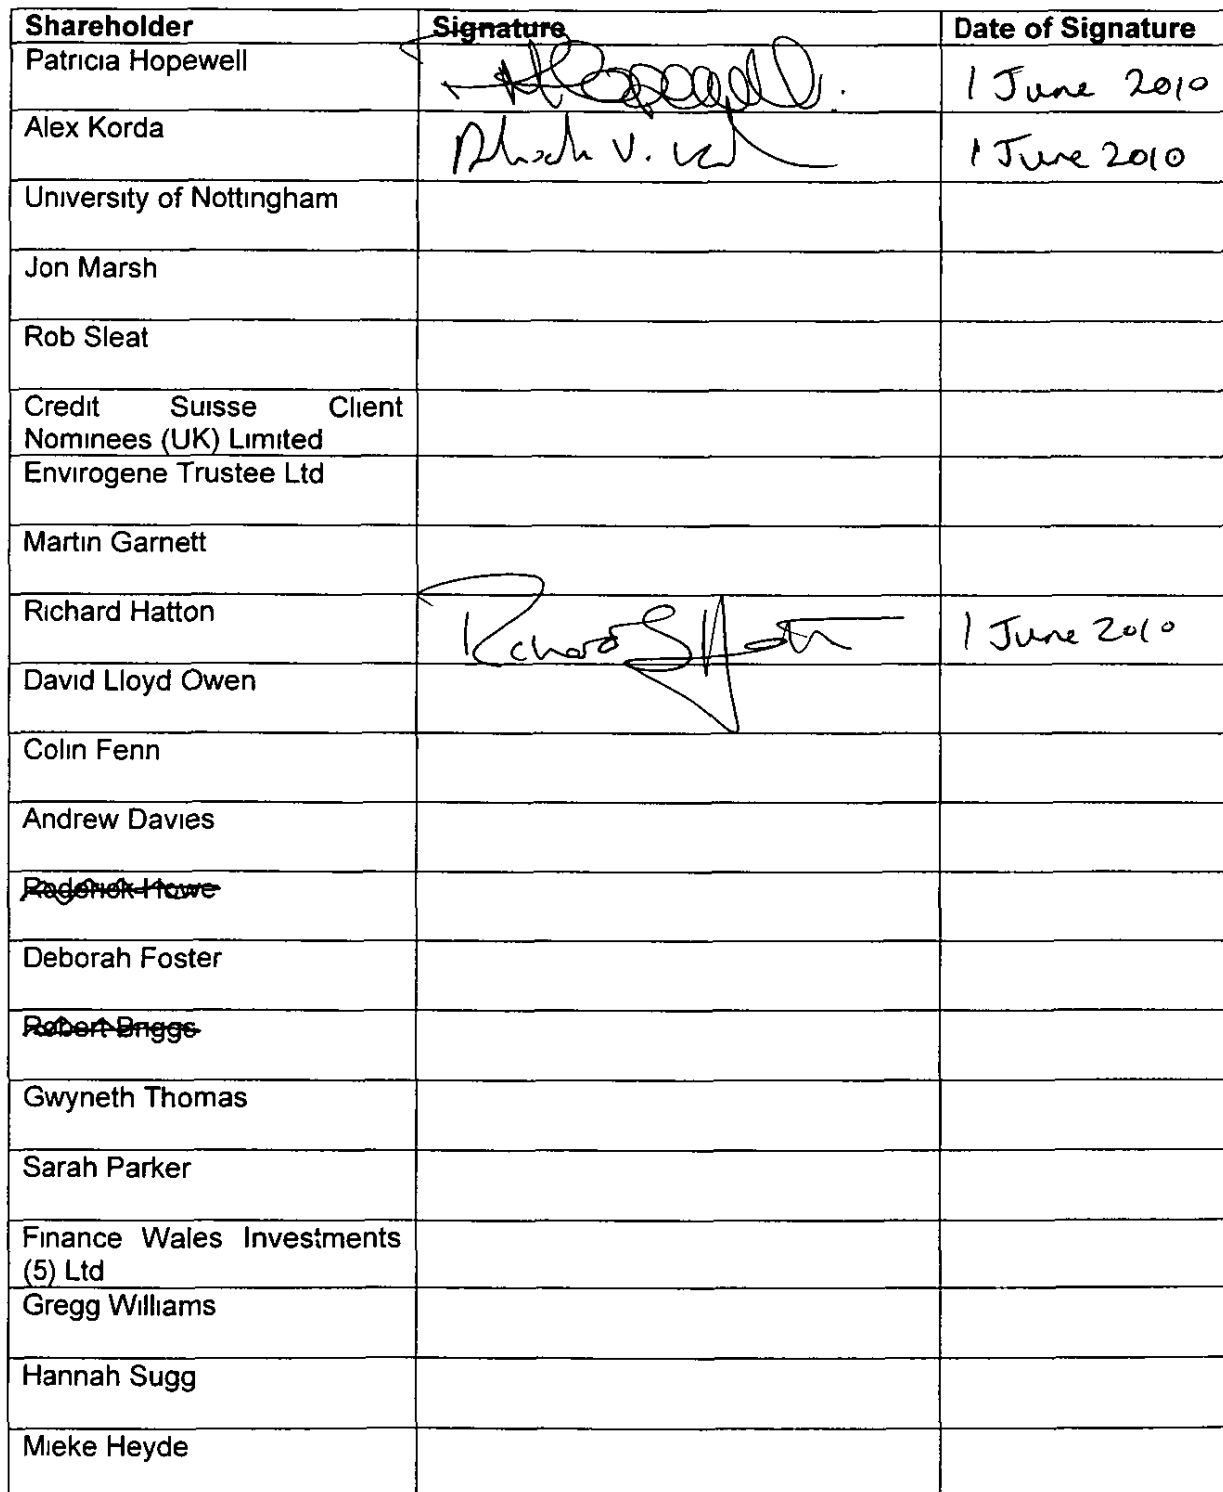 Shareholder Signature Date of Signature
Patricia Hopewell 1 June 2010
Alex Korda 1 June 2010
University of Nottingham
Jon Marsh
Rob Sleat
Credit Suisse Client
Nominees (UK) Limited
Envirogene Trustee Ltd
Martin Garnett
Richard Hatton Richard S Hatton 1 June 2010
David Lloyd Owen
Colin Fenn
Andrew Davies
Roderick Howe
Deborah Foster
Robert Briggs
Gwyneth Thomas
Sarah Parker
Finance Wales Investments
(5) Ltd
Gregg Williams
Hannah Sugg
Mieke Heyde